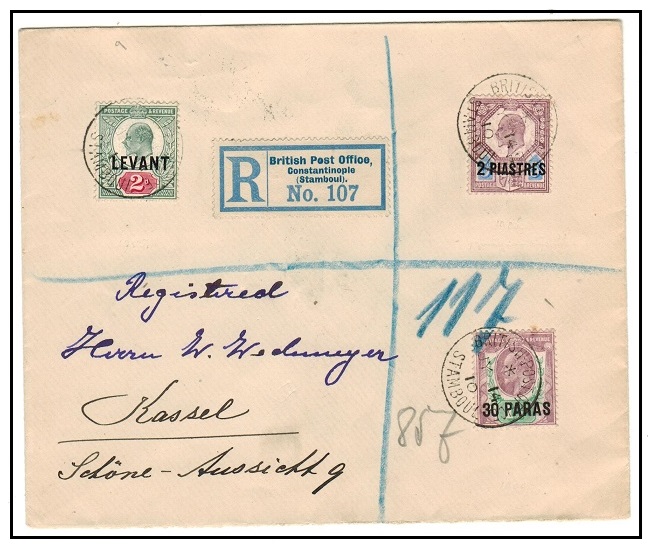 POSTAGE & REVENUE
LEVANT
2D
R
British Post Office,
Constantinople
(Stamboul).
No. 107
BRITISH
2 PIASTRES
Registered
Herrn W. Wedemeyer
Kassel
Schöne-Aussicht 9
117
BRITISH POST
STAMBOUL
30 PARAS
857